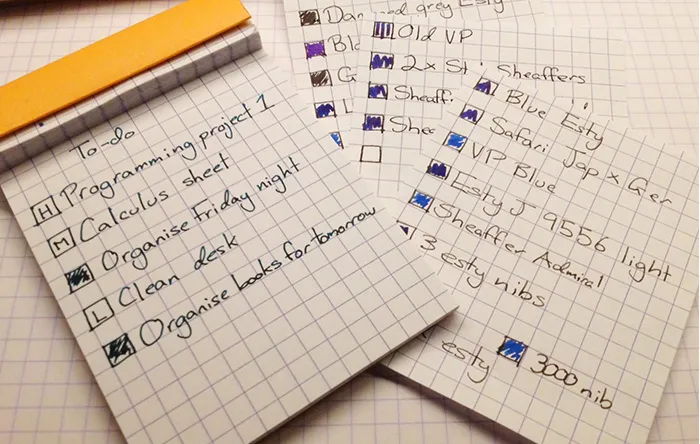 To-do
H Programming project 1
M Calculus sheet
Organise Friday night
L Clean desk
Organise books for tomorrow
grey Esty
Old VP
2x St Sheaffers
Sheaff
Shea
Blue Esty
Safari Jap x Ger
VP Blue
Esty J 9556 light
Sheaffer Admiral
3 esty nibs
esty
3000 nib